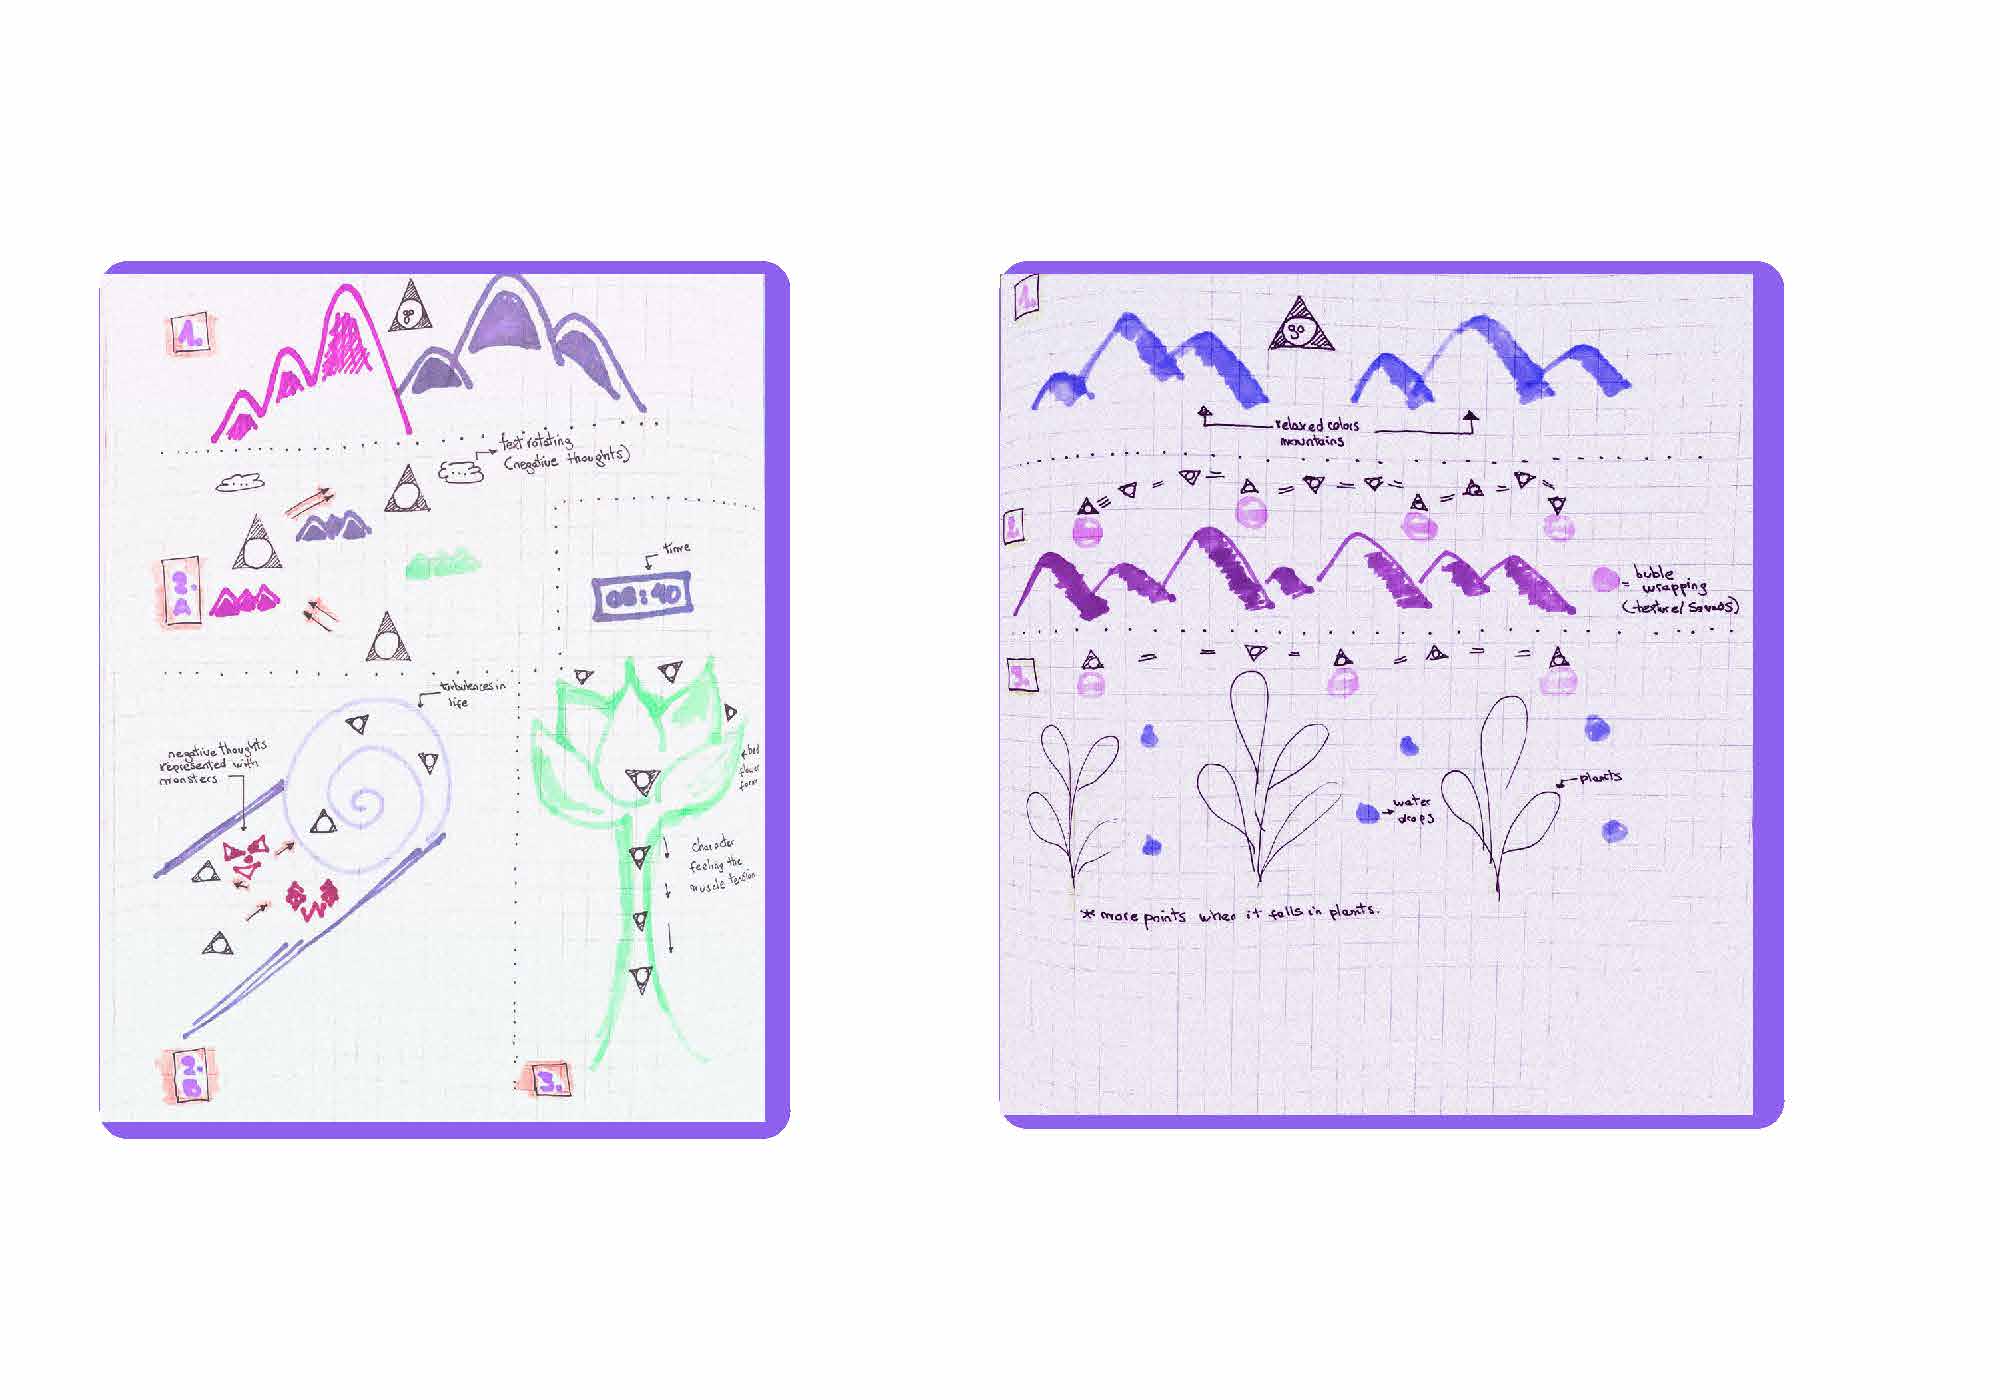 1.
go
text rotating
(negative thoughts)
2.
A
time
08:40
turbulences in
life
negative thoughts
represented with
monsters
bed
flower
form
character
feeling the
muscle tension
2.
B
3.
1.
go
relaxed colors
mountains
2.
= buble
wrapping
(texture/sounds)
3.
plants
water
drops
* more points when it falls in plants.